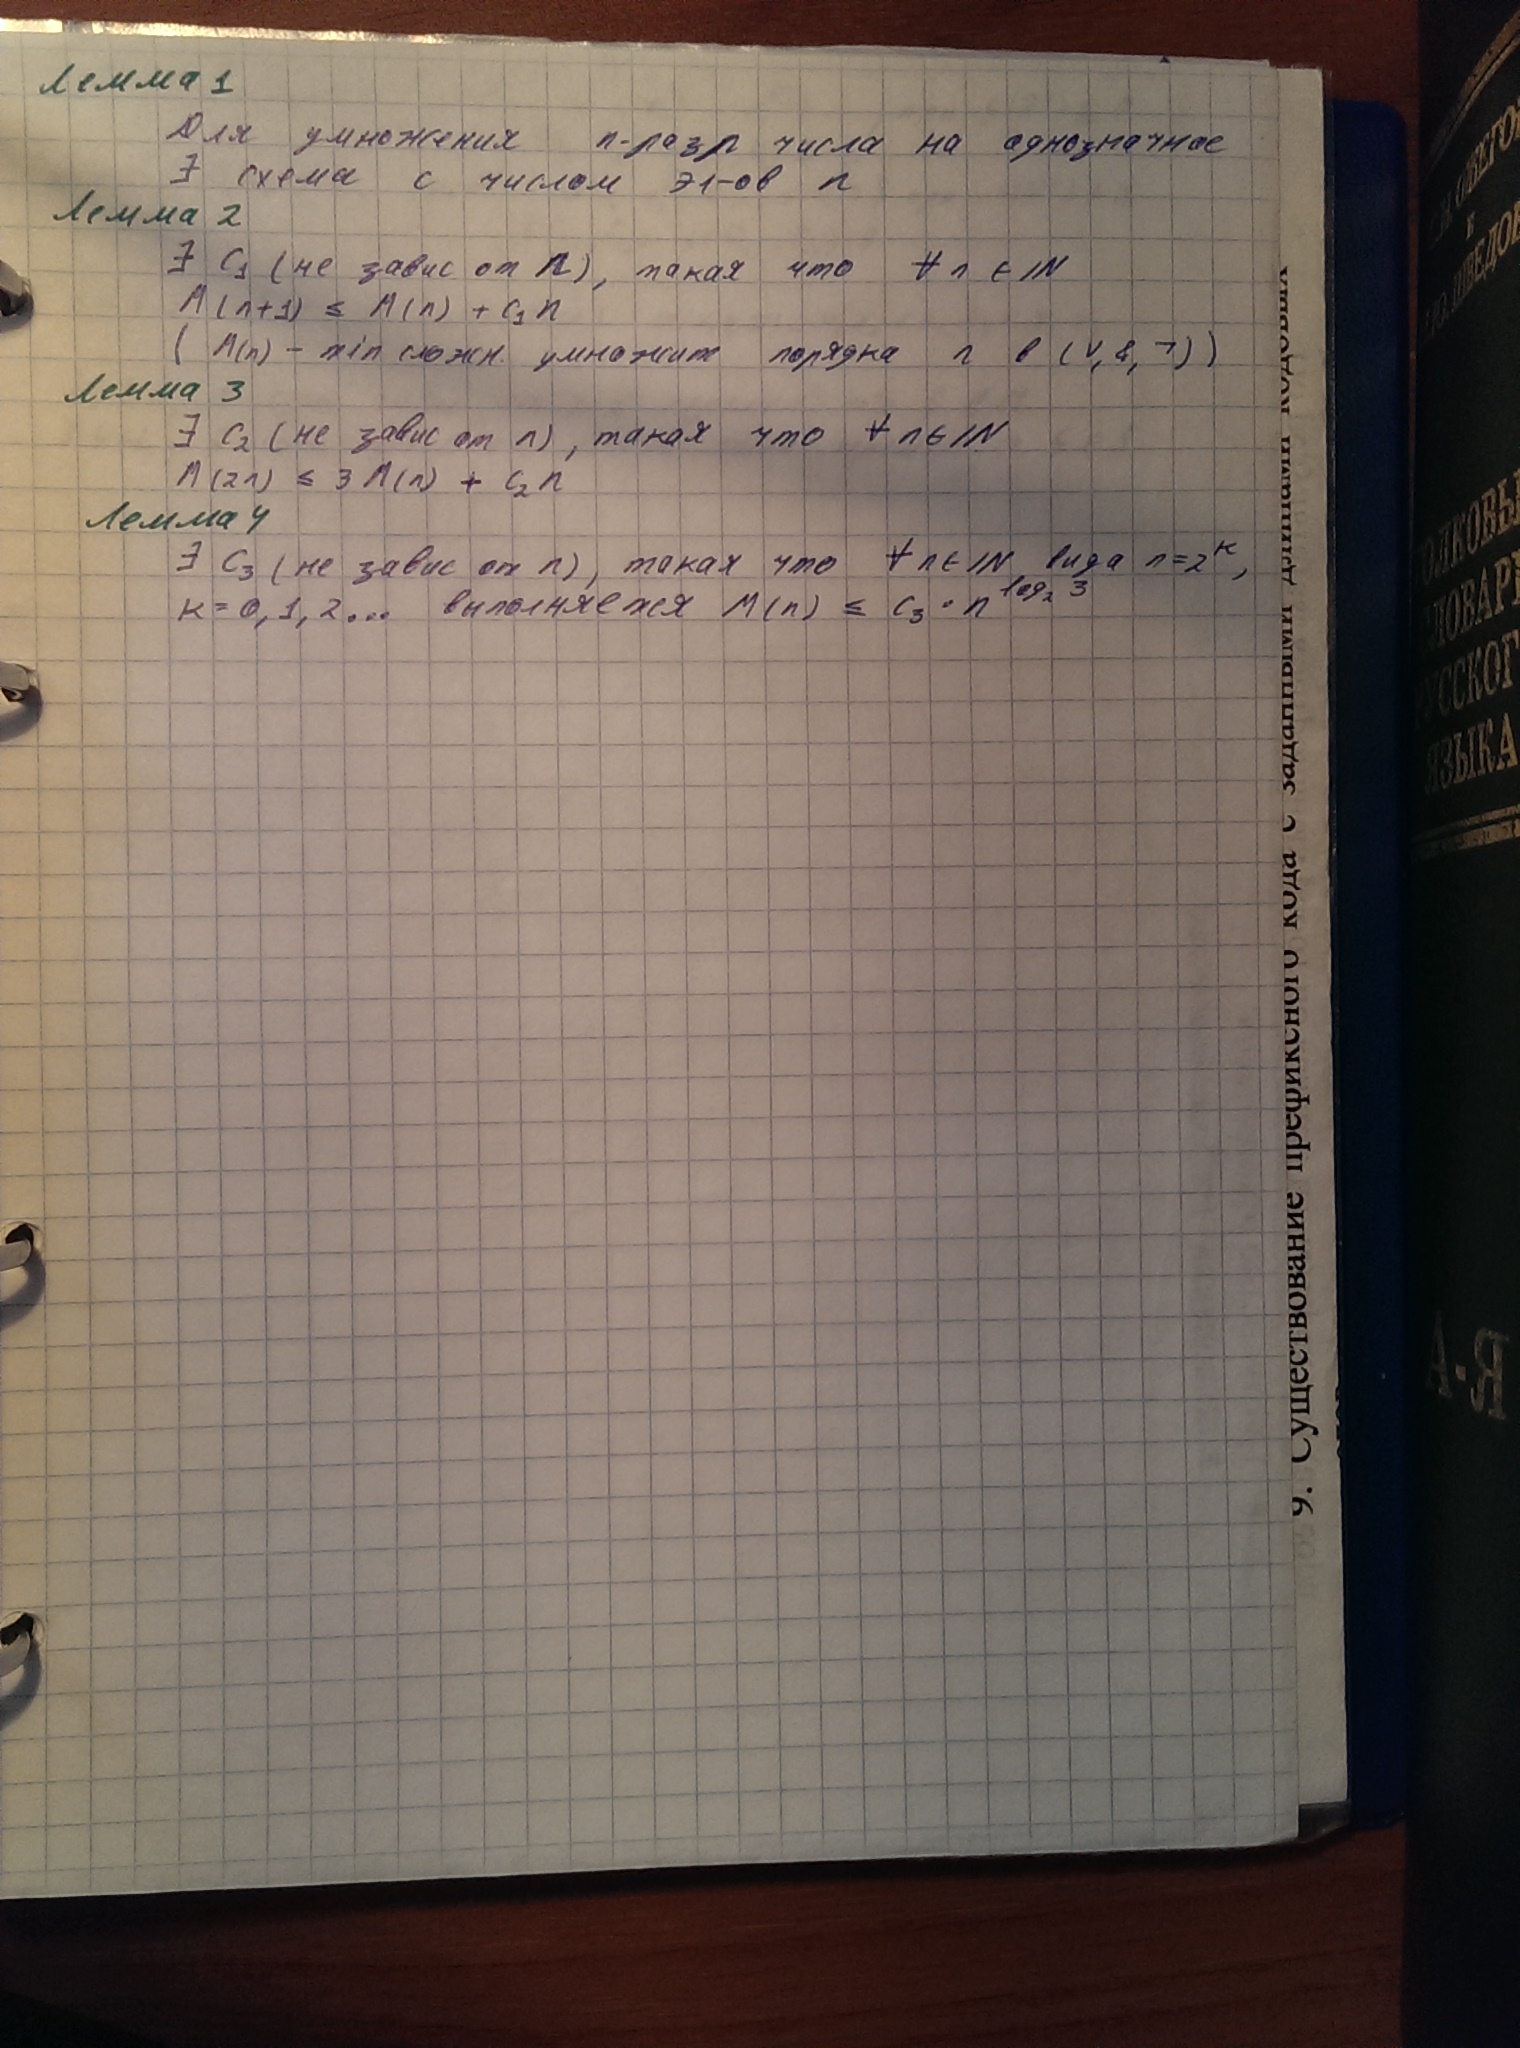 Лемма 1
Для умножения n-разр числа на однозначное
∃ схема с числом эл-ов n
Лемма 2
∃ C₁ (не завис от n), такая что ∀ n ∈ ℕ
M(n+1) ≤ M(n) + C₁n
( M(n) - min сложн. умножит порядка n в (∨, &, ¬))
Лемма 3
∃ C₂ (не завис от n), такая что ∀ n ∈ ℕ
M(2n) ≤ 3 M(n) + C₂n
Лемма 4
∃ C₃ (не завис от n), такая что ∀ n ∈ ℕ вида n=2ᵏ,
к = 0, 1, 2... выполняется M(n) ≤ C₃ · n^log₂3
9. Существование префиксного кода с заданными длинами кодовых
ОЖЕГОВ
ШВЕДОВА
ТОЛКОВЫЙ
СЛОВАРЬ
РУССКОГО
ЯЗЫКА
А-Я